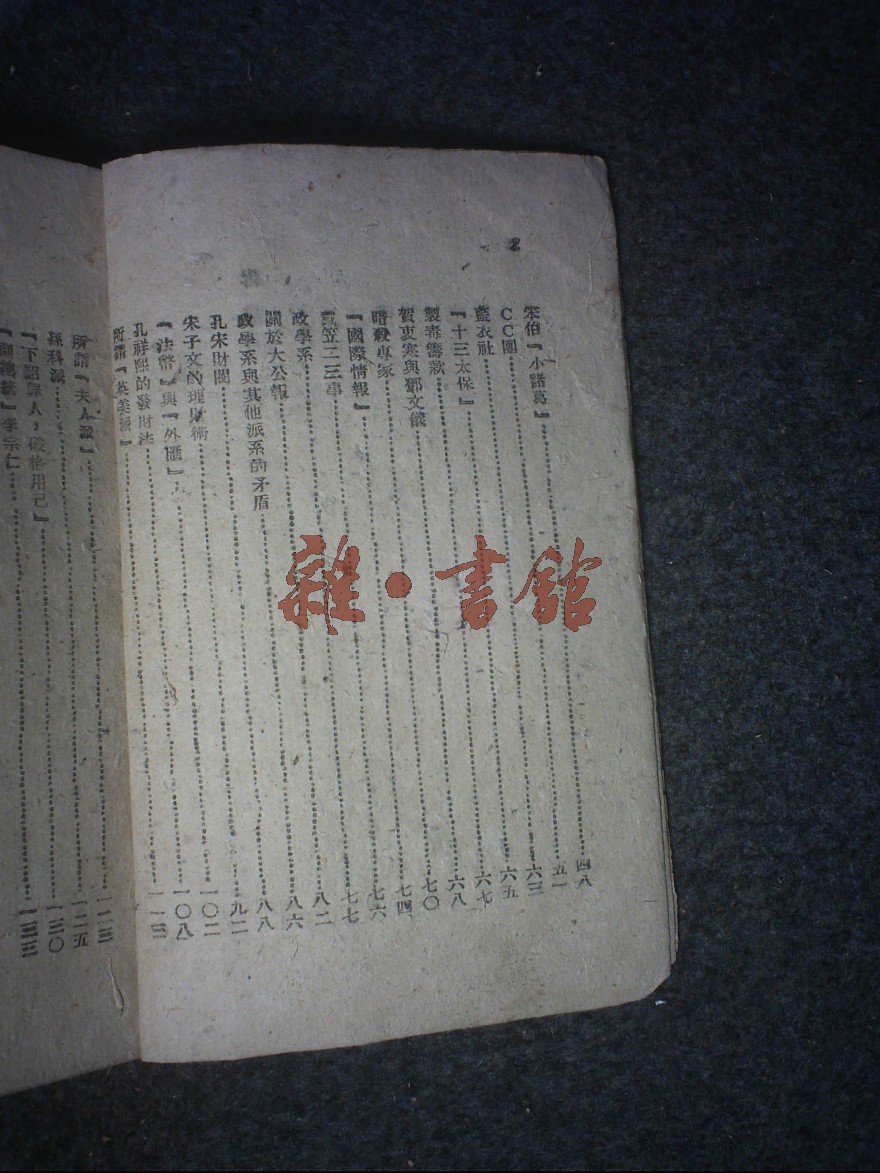 2
笨伯『小諸葛』……四八
CC團……五一
藍衣社……六三
『十三太保』……六五
製毒籌款……六七
賀衷寒與鄧文儀……六八
暗殺專家……七〇
『國際情報』……七四
戴笠二三事……七六
政學系……七七
關於大公報……八二
政學系與其他派系的矛盾……八六
孔宋財閥……八八
宋子文的理財術……九二
『法幣』與『外匯』……一〇二
孔祥熙的發財法……一〇八
所謂『英美派』……一一三
所謂『夫人派』……一二三
孫科派……一二五
『下詔罪人，破格用己』……一三〇
『副總統』李宗仁……一三三
雜·書館